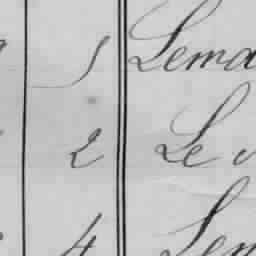 1 Lema
2 Le
4 Lem